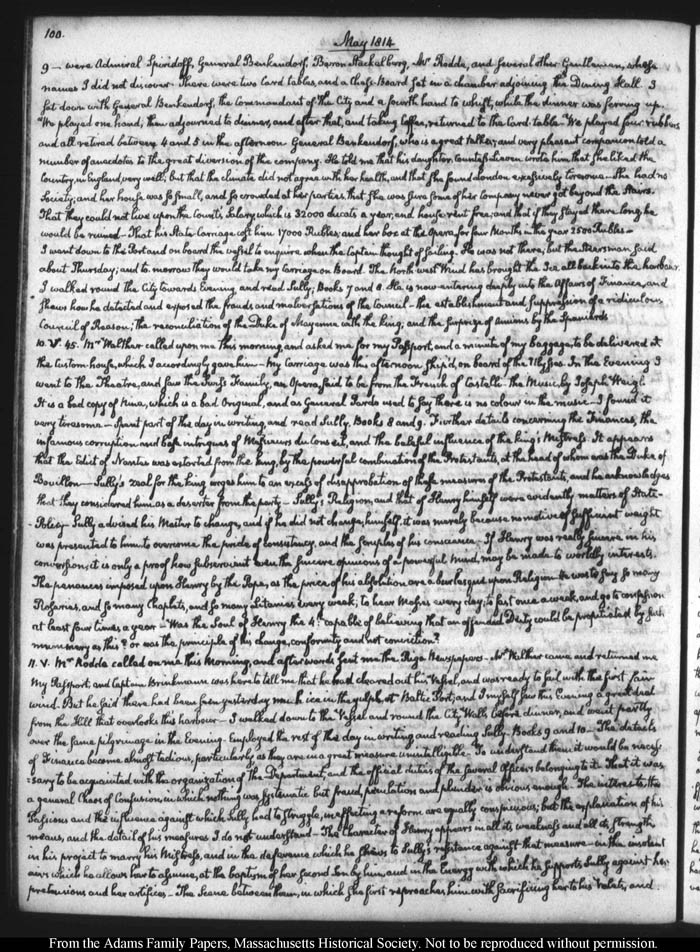 100.
May 1814
9 — were Admiral Spiridoff, General Benkendorf, Baron Stackelberg, Mr Rodde, and several other Gentlemen, whose
names I did not discover. There were two Card tables, and a Chess-Board set in a chamber adjoining the Dining Hall. I
sat down with General Benkendorf, the Commandant of the City and a fourth hand to whist, while the dinner was serving up.
We played one hand, then adjourned to dinner, and after that, and taking Coffee, returned to the Card table. We played four rubbers
and all retired between 4 and 5 in the afternoon. General Benkendorf, who is a great talker, and very pleasant companion told a
number of anecdotes to the great diversion of the company. He told me that his daughter, Countess Lieven wrote him that she liked the
Country, in England, very well; but that the climate did not agree with her health, and that she found London excessively tiresome. She had no
Society; and her house was so small, and so crowded at her parties, that she was sure some of her company never got beyond the stairs.
That they could not live upon the Count's Salary, which is 32000 ducats a year, and house rent free; and that if they stayed there long, he
would be ruined. That his State Carriage cost him 17000 Rubles, and her box at the Opera, for four Months in the year 2500 Rubles —
I went down to the Port and on board the vessel to enquire when the Captain thought of sailing. He was not there; but the Steersman said
about Thursday; and to-morrow they would take my Carriage on Board. The North-west Wind has brought the Ice all back into the harbour.
I walked round the City towards Evening and read Sully, Books 7 and 8. He is now entering deeply into the Affairs of Finance, and
shews how he detected and exposed the frauds and malversations of the Council — the establishment and suppression of a ridiculous
Council of Reason; the reconciliation of the Duke of Mayenne with the king; and the surprize of Amiens by the Spaniards
10. V. 45. Mr Walther called upon me this morning, and asked me for my Passport, and a minute of my baggage, to be delivered at
the Custom-house, which I accordingly gave him — My Carriage was this afternoon ship'd, on board of the Ulysses. In the Evening I
went to the Theatre, and saw the Swiss Family, an Opera, said to be from the French of Castelli. The Music by Joseph Weigl.
It is a bad copy of Nina, which is a bad Original, and as General Pardo used to say there is no colour in the music — I found it
very tiresome — Spent part of the day in writing, and read Sully. Books 8 and 9. Further details concerning the Finances, the
infamous corruption and base intrigues of Messieurs du Conseil, and the baleful influence of the king's Mistress. It appears
that the Edict of Nantes was extorted from the king, by the powerful combination of the Protestants, at the head of whom was the Duke of
Bouillon — Sully's zeal for the king urges him to an excess of disapprobation of these measures of the Protestants, and he acknowledges
that they considered him as a deserter from the party — Sully's Religion, and that of Henry himself were evidently matters of State-
Policy — Sully advised his Master to change, and if he did not change, himself, it was merely because no motive of sufficient weight
was presented to him to overcome the pride of consistency, and the scruples of his conscience — If Henry was really sincere in his
conversion, it is only a proof how subservient even the sincere opinions of a powerful mind, may be made to worldly interests.
The penances imposed upon Henry by the Pope, as the price of his absolution are a burlesque upon Religion — He was to say so many
Rosaries, and so many Chaplets, and so many Litanies every week; to hear Masses every day; to fast once a week, and go to confession
at least four times a year — Was the Soul of Henry the 4th capable of believing that an offended Deity could be propitiated by such
mummery as this? or was the principle of his change, conformity and not conviction?
11. V. Mr Rodde called on me this Morning, and afterwards sent me the Riga Newspapers — Mr Walther came and returned me
my Passport, and Captain Brinkmann was here to tell me that he had cleared out his Vessel, and was ready to sail with the first fair
wind. But he said there had been seen yesterday much ice in the gulph at Baltic Port, and I myself saw this Evening a great deal
from the Hill that overlooks this harbour — I walked down to the Vessel and round the City Walls before dinner, and went partly
over the same pilgrimage in the Evening. Employed the rest of the day in writing and reading Sully. Books 9 and 10 — The details
of Finance become almost tedious, particularly as they are in a great measure unintelligible. To understand them it would be neces-
sary to be acquainted with the organization of the Department, and the official duties of the several Officers belonging to it. That it was
a general Chaos of Confusion, in which nothing was systematic but fraud, peculation and plunder is obvious enough. The interests the
Passions and the influence against which Sully had to struggle, in effecting a reform are equally conspicuous; but the explanation of his
means, and the detail of his measures I do not understand — The Character of Henry appears in all its weakness and all its strength
in his project to marry his Mistress, and in the deference which he shews to Sully's resistance against that measure — in the insolent
airs which he allows her to assume, at the baptism of her second Son by him, and in the Energy with which he supports Sully against her
pretensions and her artifices — The Scene between them, in which she first reproaches him with sacrificing her to his Valets, and
From the Adams Family Papers, Massachusetts Historical Society. Not to be reproduced without permission.